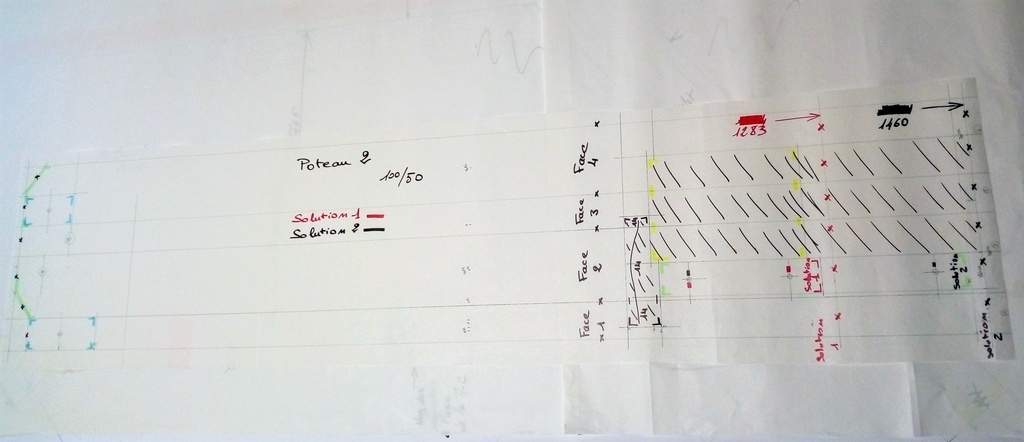 Poteau 2
100/50
Solution 1
Solution 2
1283
1160
Face 4
Face 3
Face 2
Face 1
14
14
14
Solution 1
Solution 2
Solution 1
Solution 2